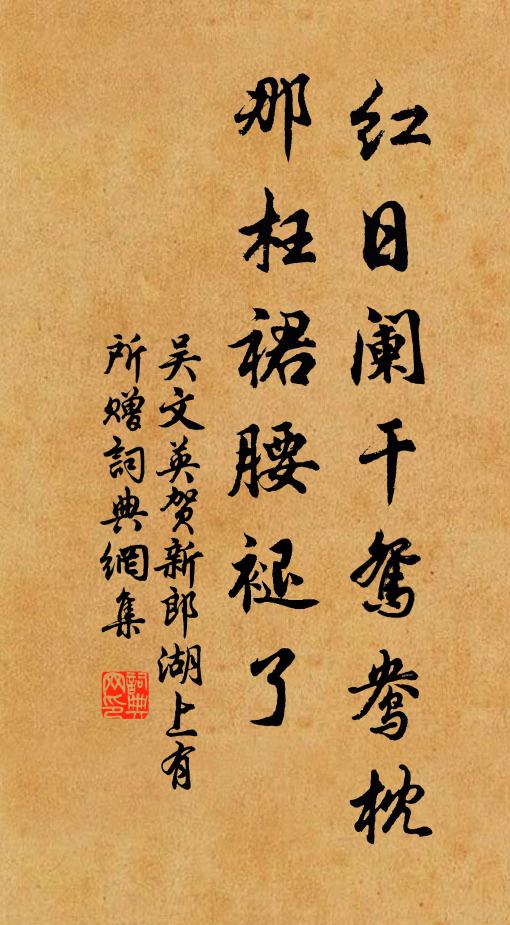 红日阑干鸳鸯枕
那枉裙腰褪了
吴文英贺新郎湖上有
所赠詞典網集
詞典网印